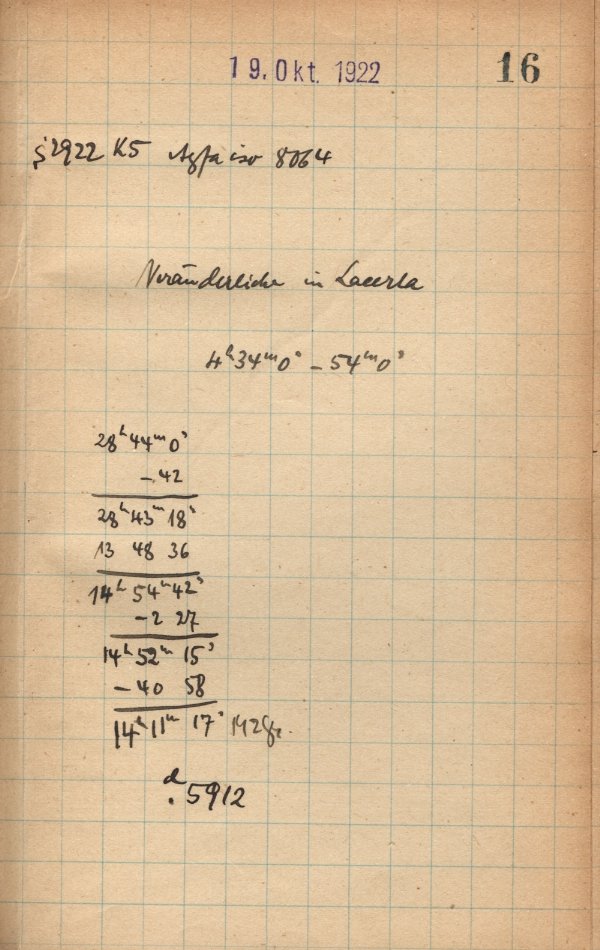 19. Okt. 1922
16
1922 K5 Agfa iso 8064
Veränderliche in Lacerta
4ʰ34ᵐ0ˢ – 54ᵐ0ˢ
28ʰ44ᵐ0ˢ
– 42
28ʰ43ᵐ18ˢ
13 48 36
14ʰ54ᵐ42ˢ
–2 27
14ʰ52ᵐ15ˢ
– 40 58
14ʰ11ᵐ17ˢ
ᵈ.5912